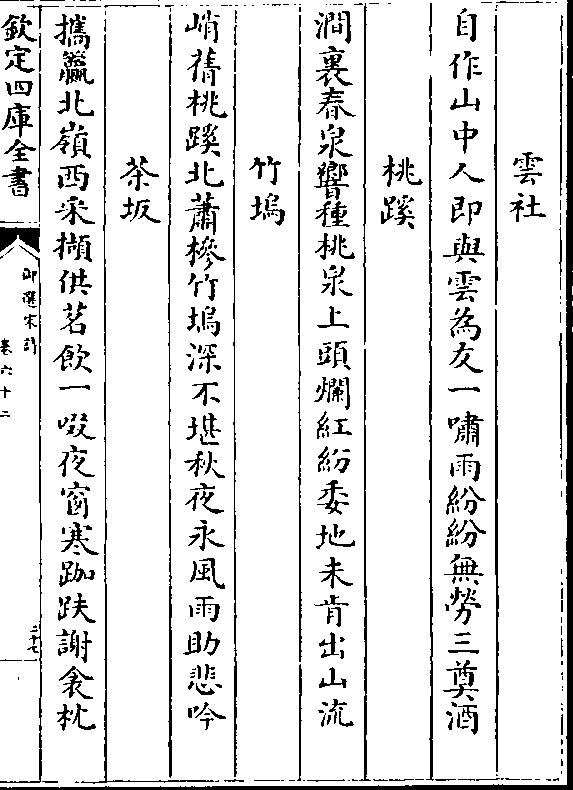 雲社
自作山中人即與雲為友一嘯雨紛紛無勞三奠酒
桃蹊
澗裏春泉響種桃泉上頭爛紅紛委地未肯出山流
竹塢
峭蒨桃蹊北蕭槮竹塢深不堪秋夜永風雨助悲吟
茶坂
攜籯北嶺西采擷供茗飲一啜夜窗寒跏趺謝衾枕
欽定四庫全書
御選宋詩
卷六十二
二十七